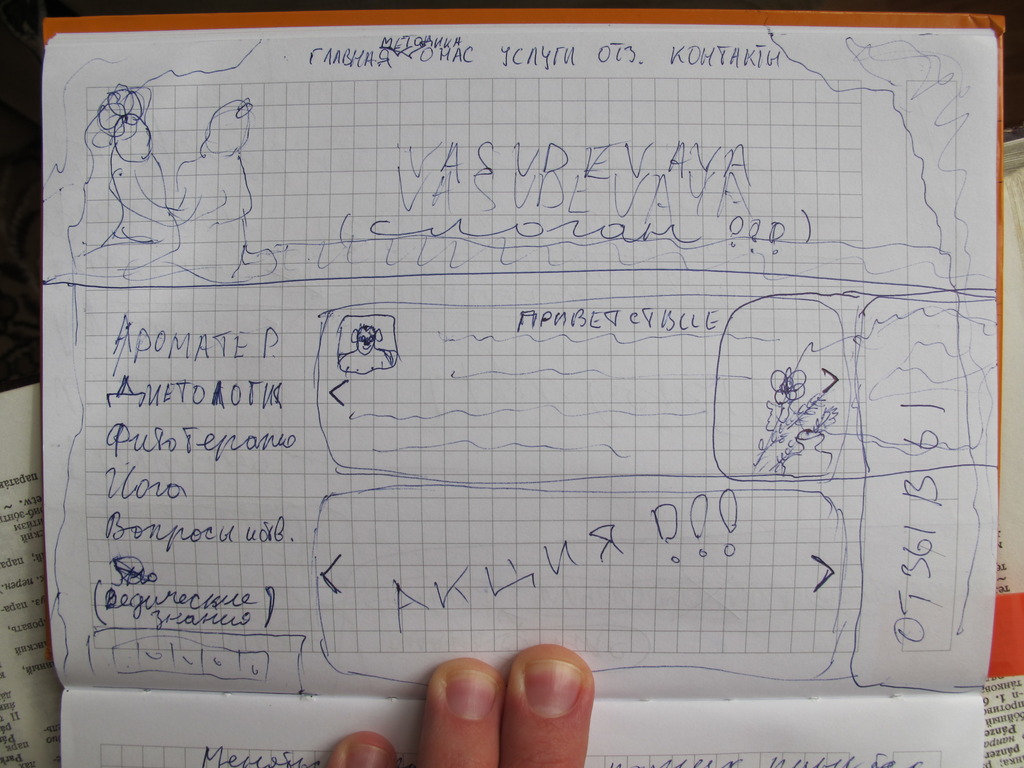 МЕТОДИКА
ГЛАВНАЯ О НАС УСЛУГИ ОТЗ. КОНТАКТЫ
VASUDEVAYA
VASUDEVAYA
(слоган ???)
АРОМАТЕР.
ДИЕТОЛОГИЯ
Фитотерапию
Йога
Вопросы и отв.
(ведические
знания)
ПРИВЕТСТВИЕ
< >
АКЦИЯ !!!
< >
ОТЗЫВЫ